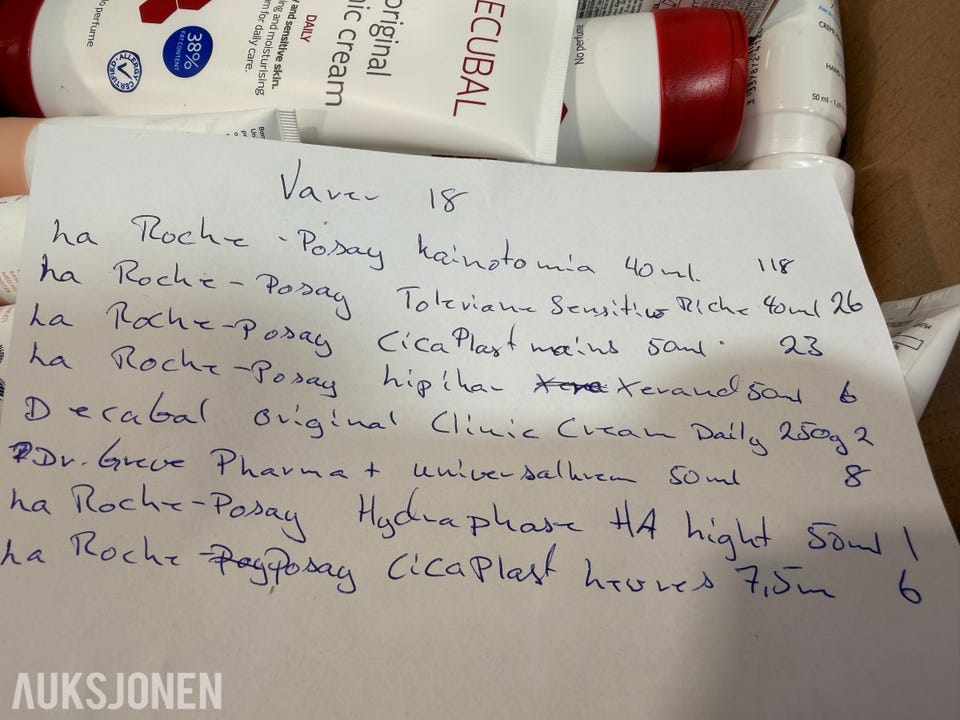 o perfume
38%
FAT CONTENT
ALLERGY
CERTIFIED
and sensitive skin.
ing and moisturising
m for daily care.
DAILY
original
nic cream
ECUBAL
No perfume
50 ml
Varer 18
La Roche-Posay kainotomia 40ml. 118
La Roche-Posay Toleriane Sensitive Riche 40ml 26
La Roche-Posay CicaPlast mains 50ml. 23
La Roche-Posay Lipikar Xerand 50ml 6
Decubal original Clinic Cream Daily 250g 2
Dr. Greve Pharma + universalkrem 50ml 8
La Roche-Posay Hydraphase HA light 50ml 1
La Roche-Posay CicaPlast levres 7,5m 6
AUKSJONEN